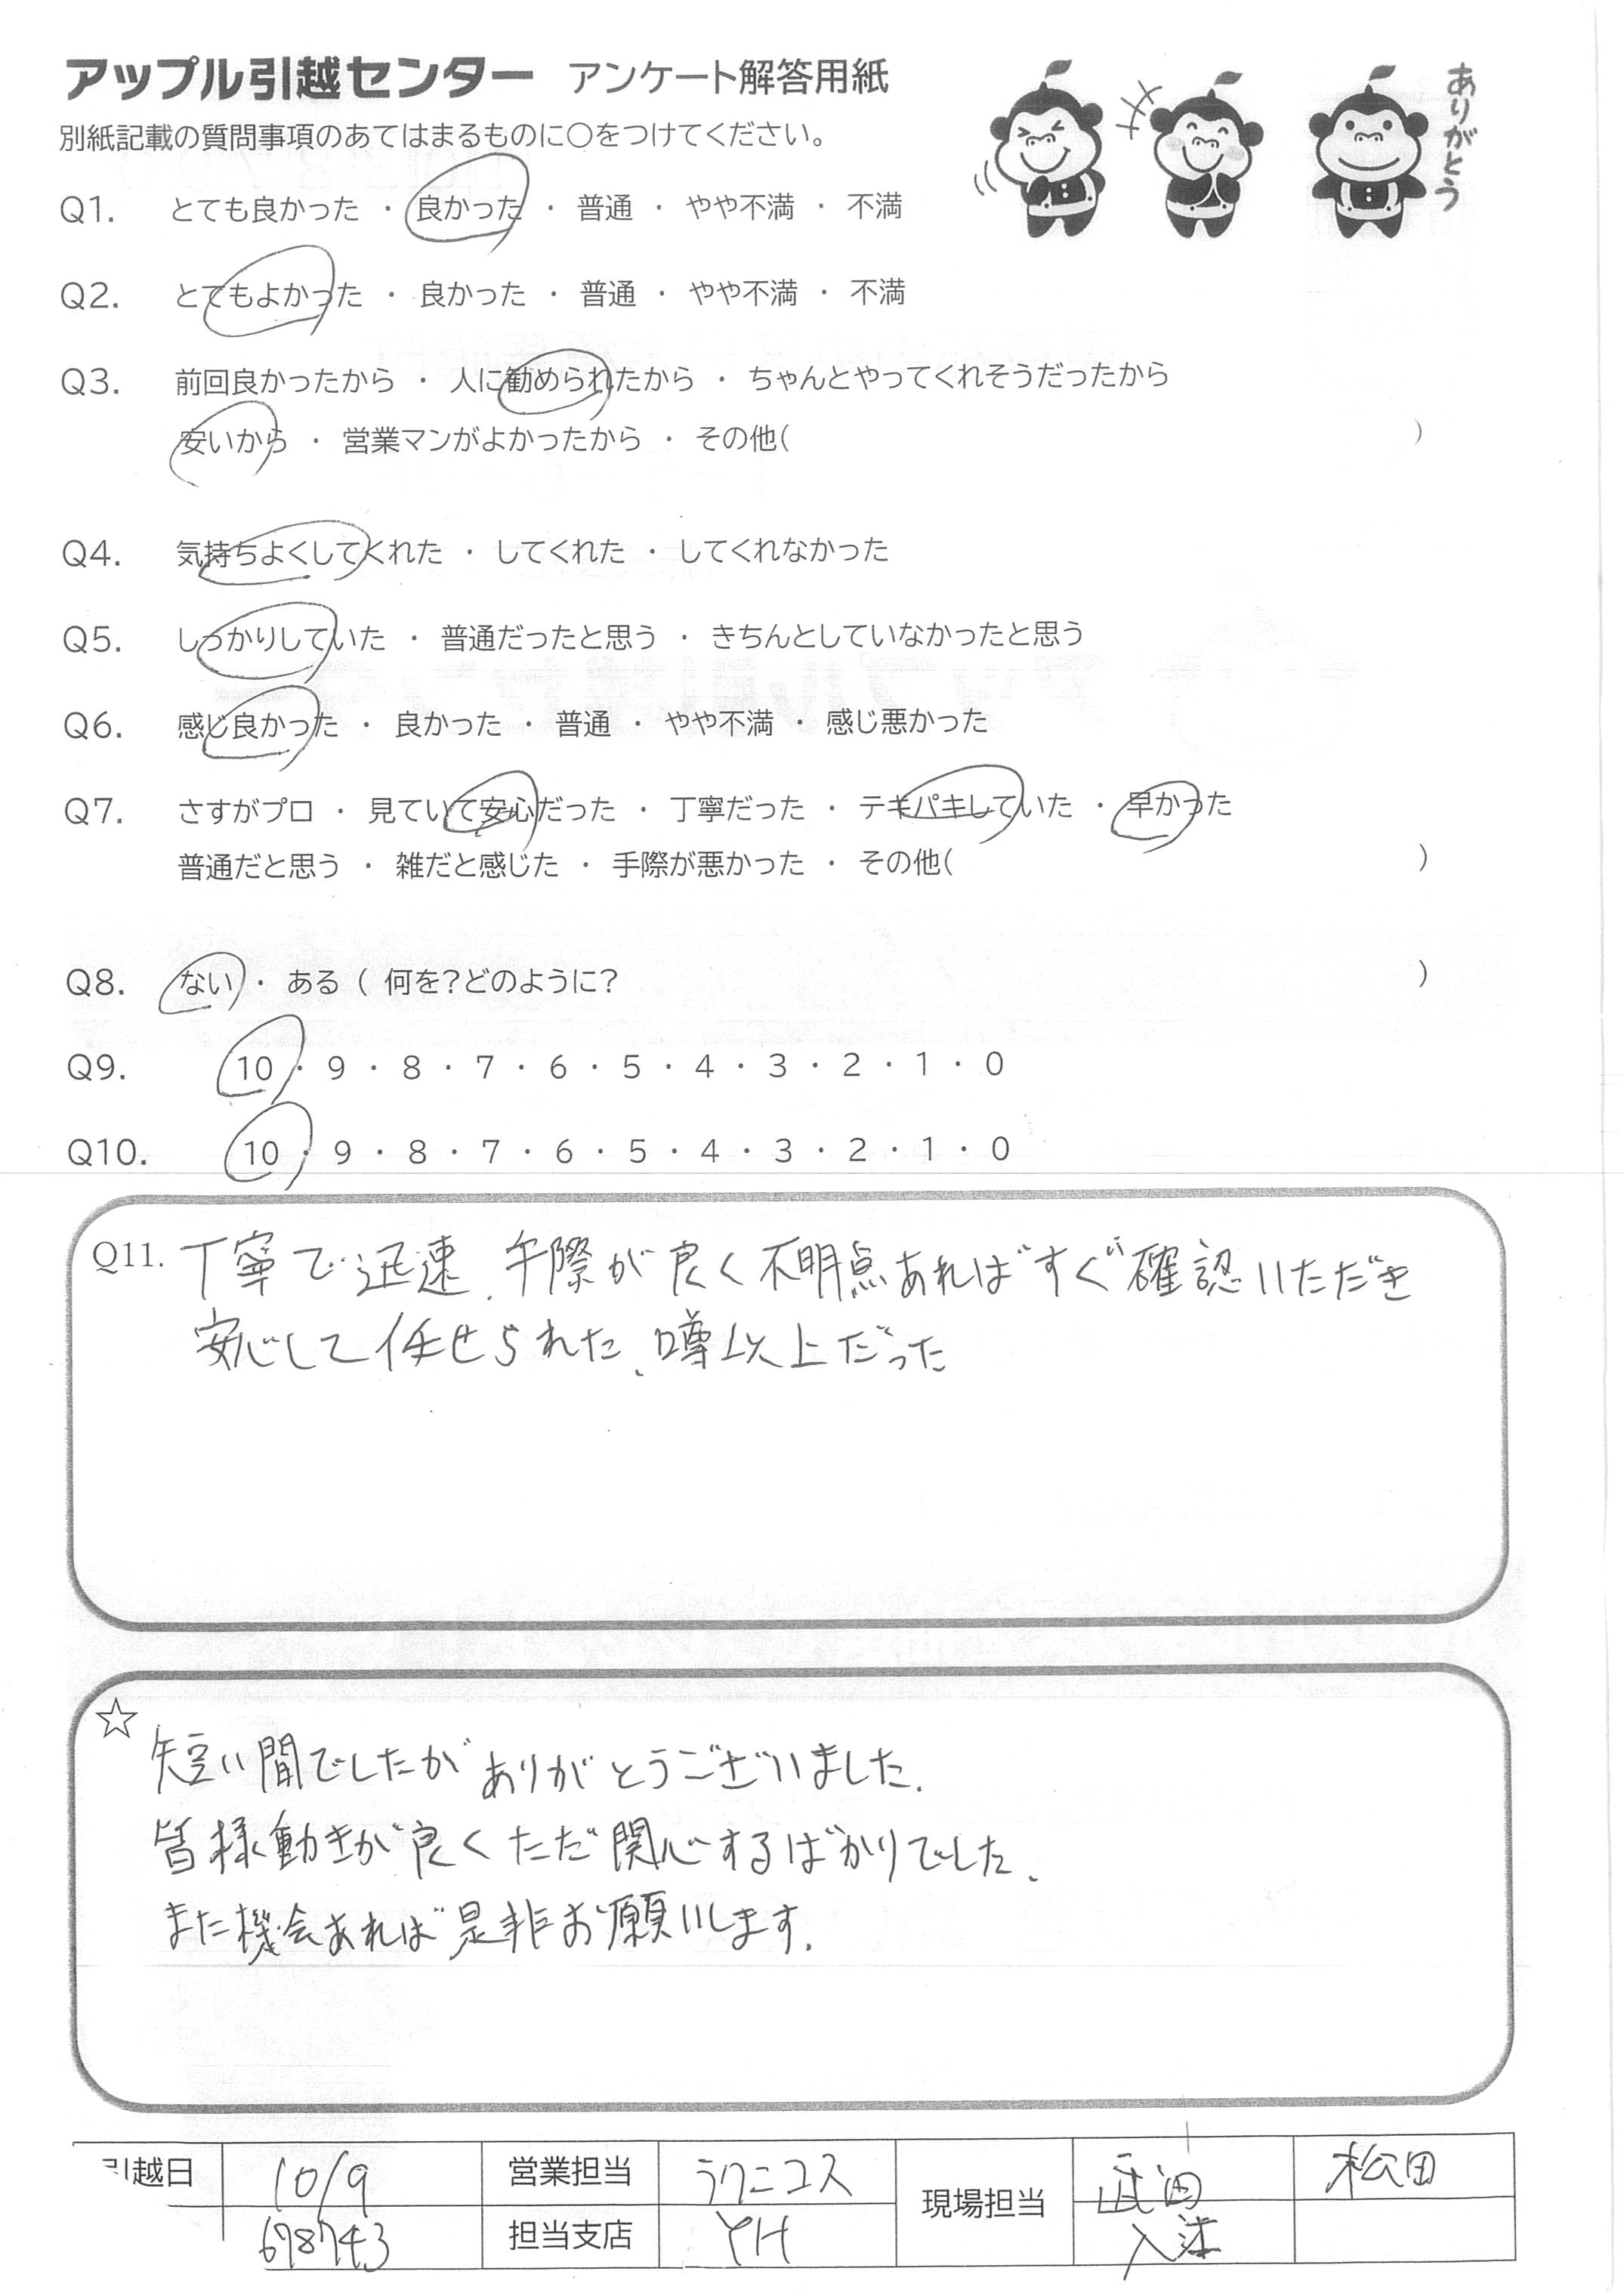 アップル引越センター アンケート解答用紙
ありがとう
別紙記載の質問事項のあてはまるものに○をつけてください。
Q1. とても良かった ・ 良かった ・ 普通 ・ やや不満 ・ 不満
Q2. とてもよかった ・ 良かった ・ 普通 ・ やや不満 ・ 不満
Q3. 前回良かったから ・ 人に勧められたから ・ ちゃんとやってくれそうだったから
安いから ・ 営業マンがよかったから ・ その他( )
Q4. 気持ちよくしてくれた ・ してくれた ・ してくれなかった
Q5. しっかりしていた ・ 普通だったと思う ・ きちんとしていなかったと思う
Q6. 感じ良かった ・ 良かった ・ 普通 ・ やや不満 ・ 感じ悪かった
Q7. さすがプロ ・ 見ていて安心だった ・ 丁寧だった ・ テキパキしていた ・ 早かった
普通だと思う ・ 雑だと感じた ・ 手際が悪かった ・ その他( )
Q8. ない ・ ある ( 何を?どのように? )
Q9. 10 ・ 9 ・ 8 ・ 7 ・ 6 ・ 5 ・ 4 ・ 3 ・ 2 ・ 1 ・ 0
Q10. 10 ・ 9 ・ 8 ・ 7 ・ 6 ・ 5 ・ 4 ・ 3 ・ 2 ・ 1 ・ 0
Q11. 丁寧で迅速、手際が良く不明点あればすぐ確認いただき
安心して任せられた、噂以上だった
☆
短い間でしたがありがとうございました.
皆様動きが良くただ関心するばかりでした.
また機会あれば是非お願いします.
引越日 10/9 営業担当 ラクニコス 現場担当 武田 松田
678743 担当支店 YH 入